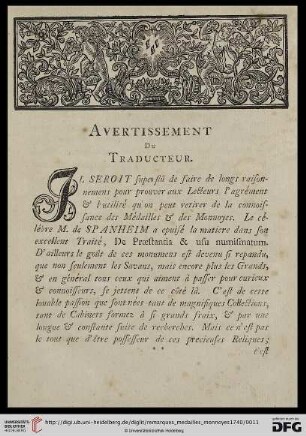 AVERTISSEMENT
DU
TRADUCTEUR.
IL SEROIT superflû de faire de longs raison-
nemens pour prouver aux Lecteurs l'agrément
& l'utilité qu'on peut retirer de la connois-
sance des Médailles & des Monnoyes. Le cé-
lèbre M. de SPANHEIM a epuisé la matiere dans son
excellent Traité, De Præstantia & usu numismatum.
D'ailleurs le goût de ces monumens est devenu si repandu,
que non seulement les Savans, mais encore plus les Grands,
& en général tous ceux qui aiment à passer pour curieux
& connoisseurs, se jettent de ce côté là. C'est de cette
louable passion que sont nées tant de magnifiques Collections,
tant de Cabinets formez à si grands fraix, & par une
longue & constante suite de recherches. Mais ce n'est pas
le tout que d'être possesseur de ces precieuses Reliques;
* *
c'est
UNIVERSITÄTS-
BIBLIOTHEK
HEIDELBERG
http://digi.ub.uni-heidelberg.de/diglit/remarques_medailles_monnoyes1740/0011
© Universitätsbibliothek Heidelberg
gefördert durch die
DFG